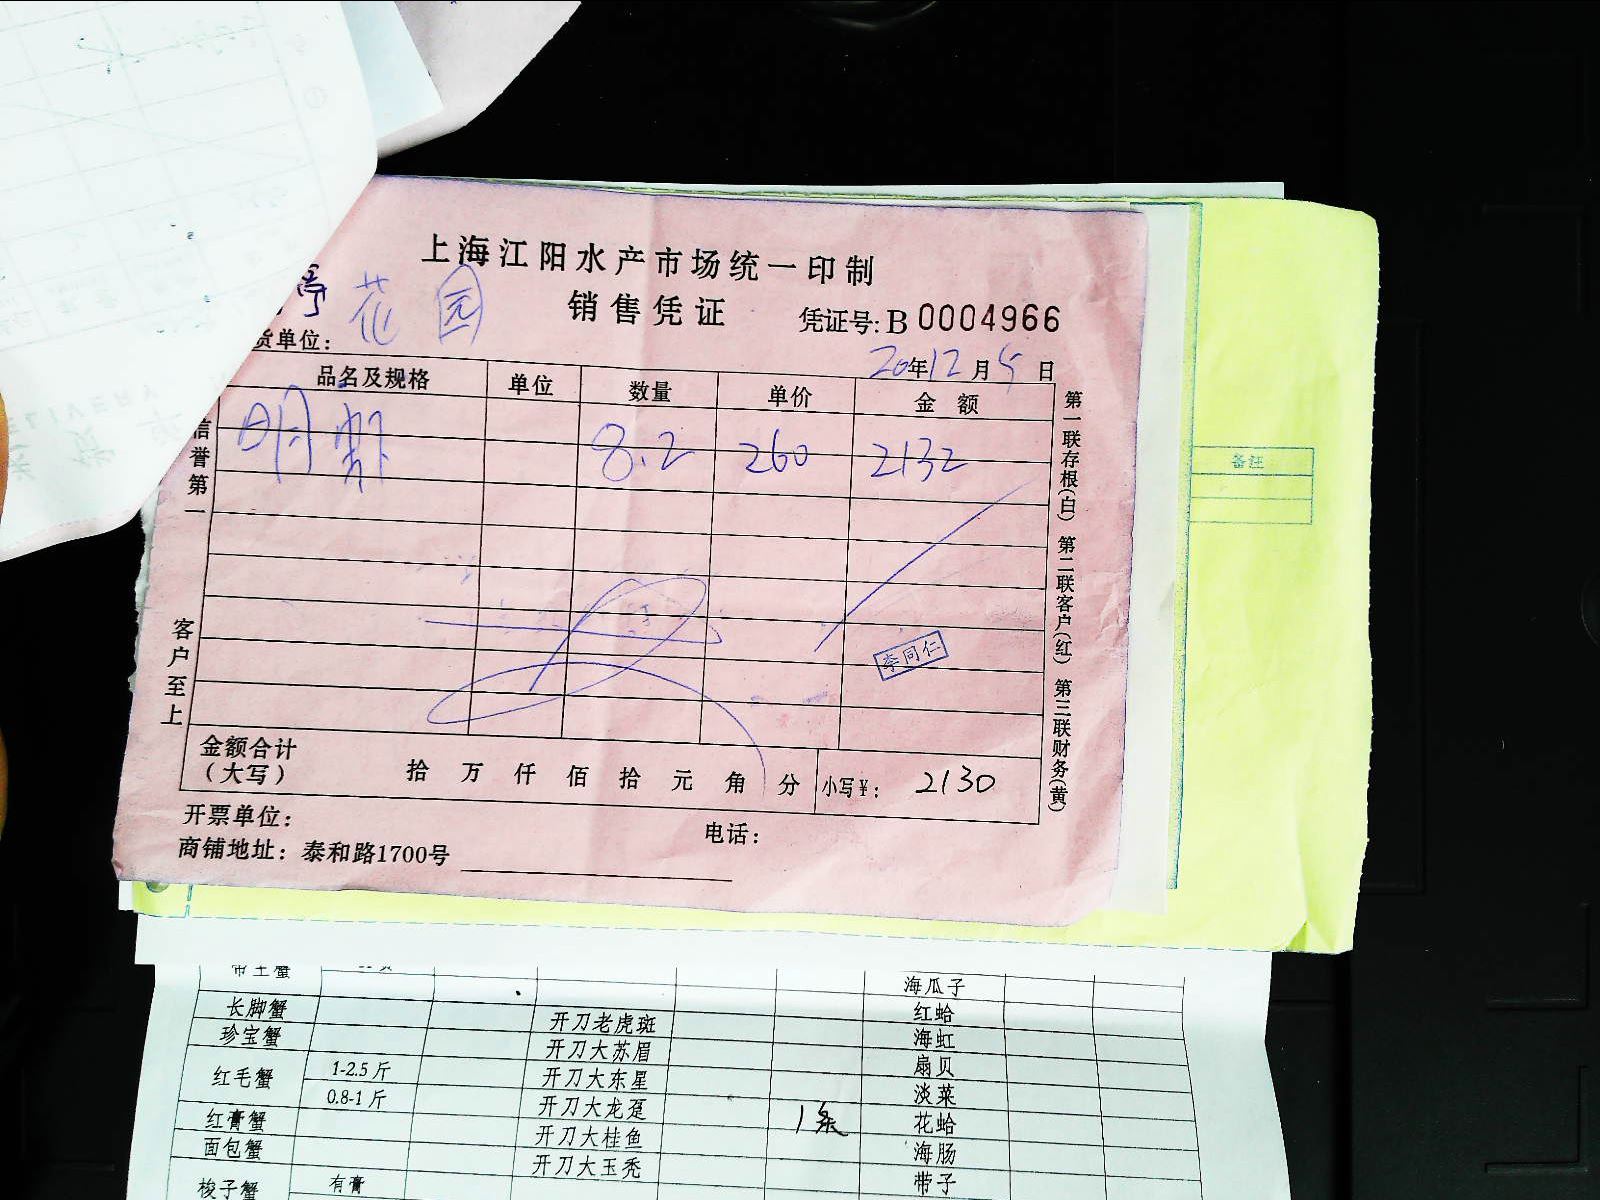 上海江阳水产市场统一印制
花园
销售凭证
凭证号: B 0004966
货单位:
20年12月5日
品名及规格 单位 数量 单价 金额
明虾 8.2 260 2132
信誉第一
客户至上
第一联存根(白) 第二联客户(红) 第三联财务(黄)
李同仁
金额合计
(大写) 拾万仟佰拾元角分 小写¥: 2130
开票单位:
电话:
商铺地址: 泰和路1700号
备注
帝王蟹 海瓜子
长脚蟹 开刀老虎斑 红蛤
珍宝蟹 开刀大苏眉 海虹
红毛蟹 1-2.5斤 开刀大东星 扇贝
0.8-1斤 开刀大龙趸 淡菜
红膏蟹 开刀大桂鱼 1条 花蛤
面包蟹 开刀大玉秃 海肠
梭子蟹 有膏 带子